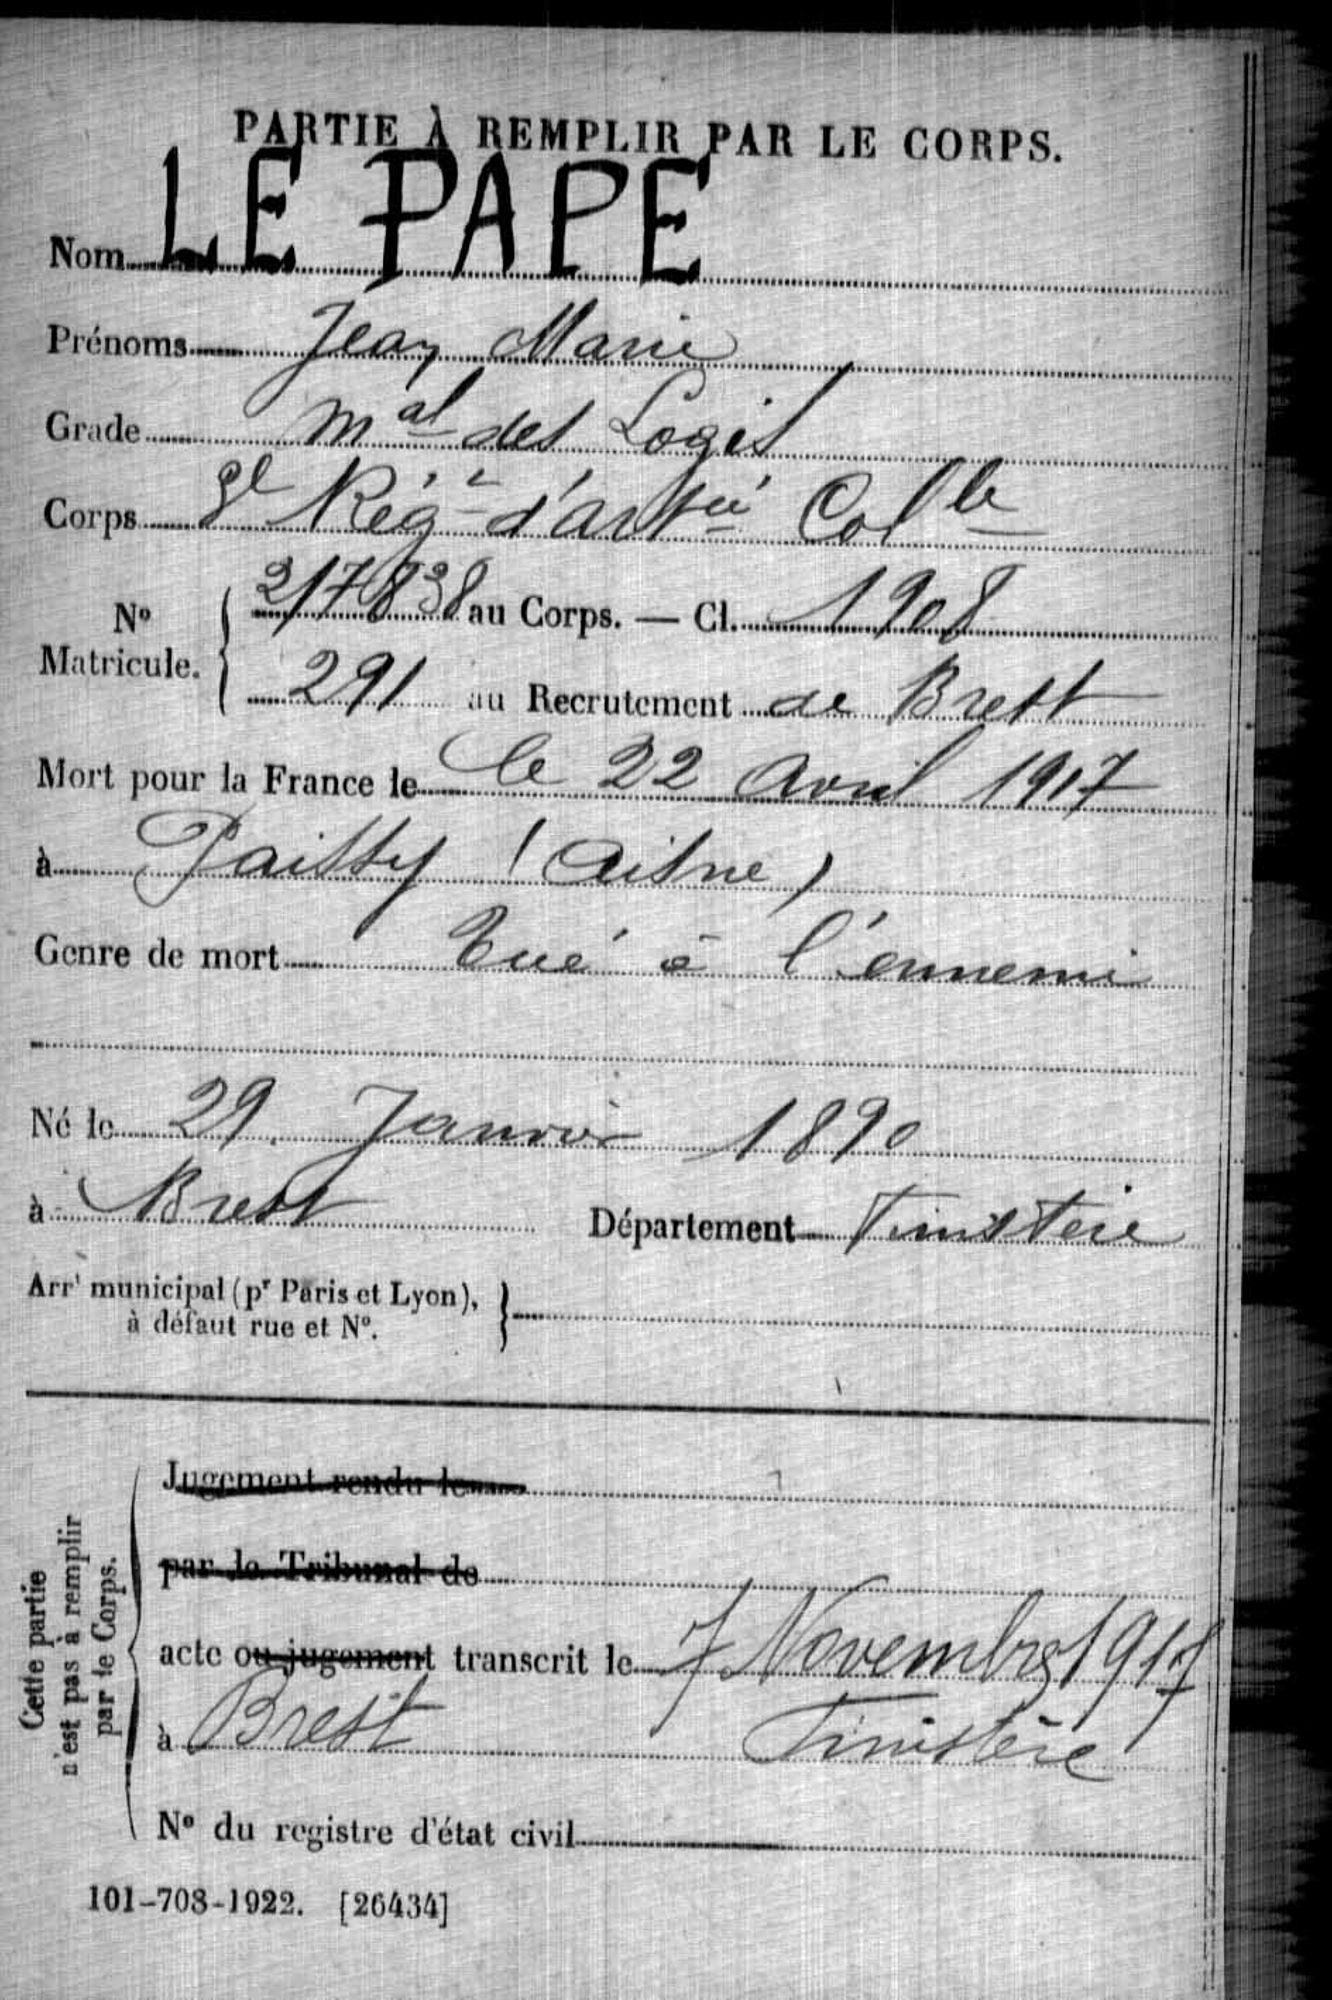 PARTIE À REMPLIR PAR LE CORPS.
Nom LE PAPE
Prénoms Jean Marie
Grade Mal des Logis
Corps Régt d'artie Colle
No Matricule. 217838 au Corps. — Cl. 1908
291 au Recrutement de Brest
Mort pour la France le le 22 Avril 1917
à Paissy (Aisne)
Genre de mort Tué à l'ennemi
Né le 29 Janvier 1890
à Brest Département Finistère
Arrt municipal (pr Paris et Lyon),
à défaut rue et No.
Cette partie
n'est pas à remplir
par le Corps.
Jugement rendu le
par le Tribunal de
acte ou jugement transcrit le 7 Novembre 1917
à Brest Finistère
No du registre d'état civil
101-708-1922. [26434]